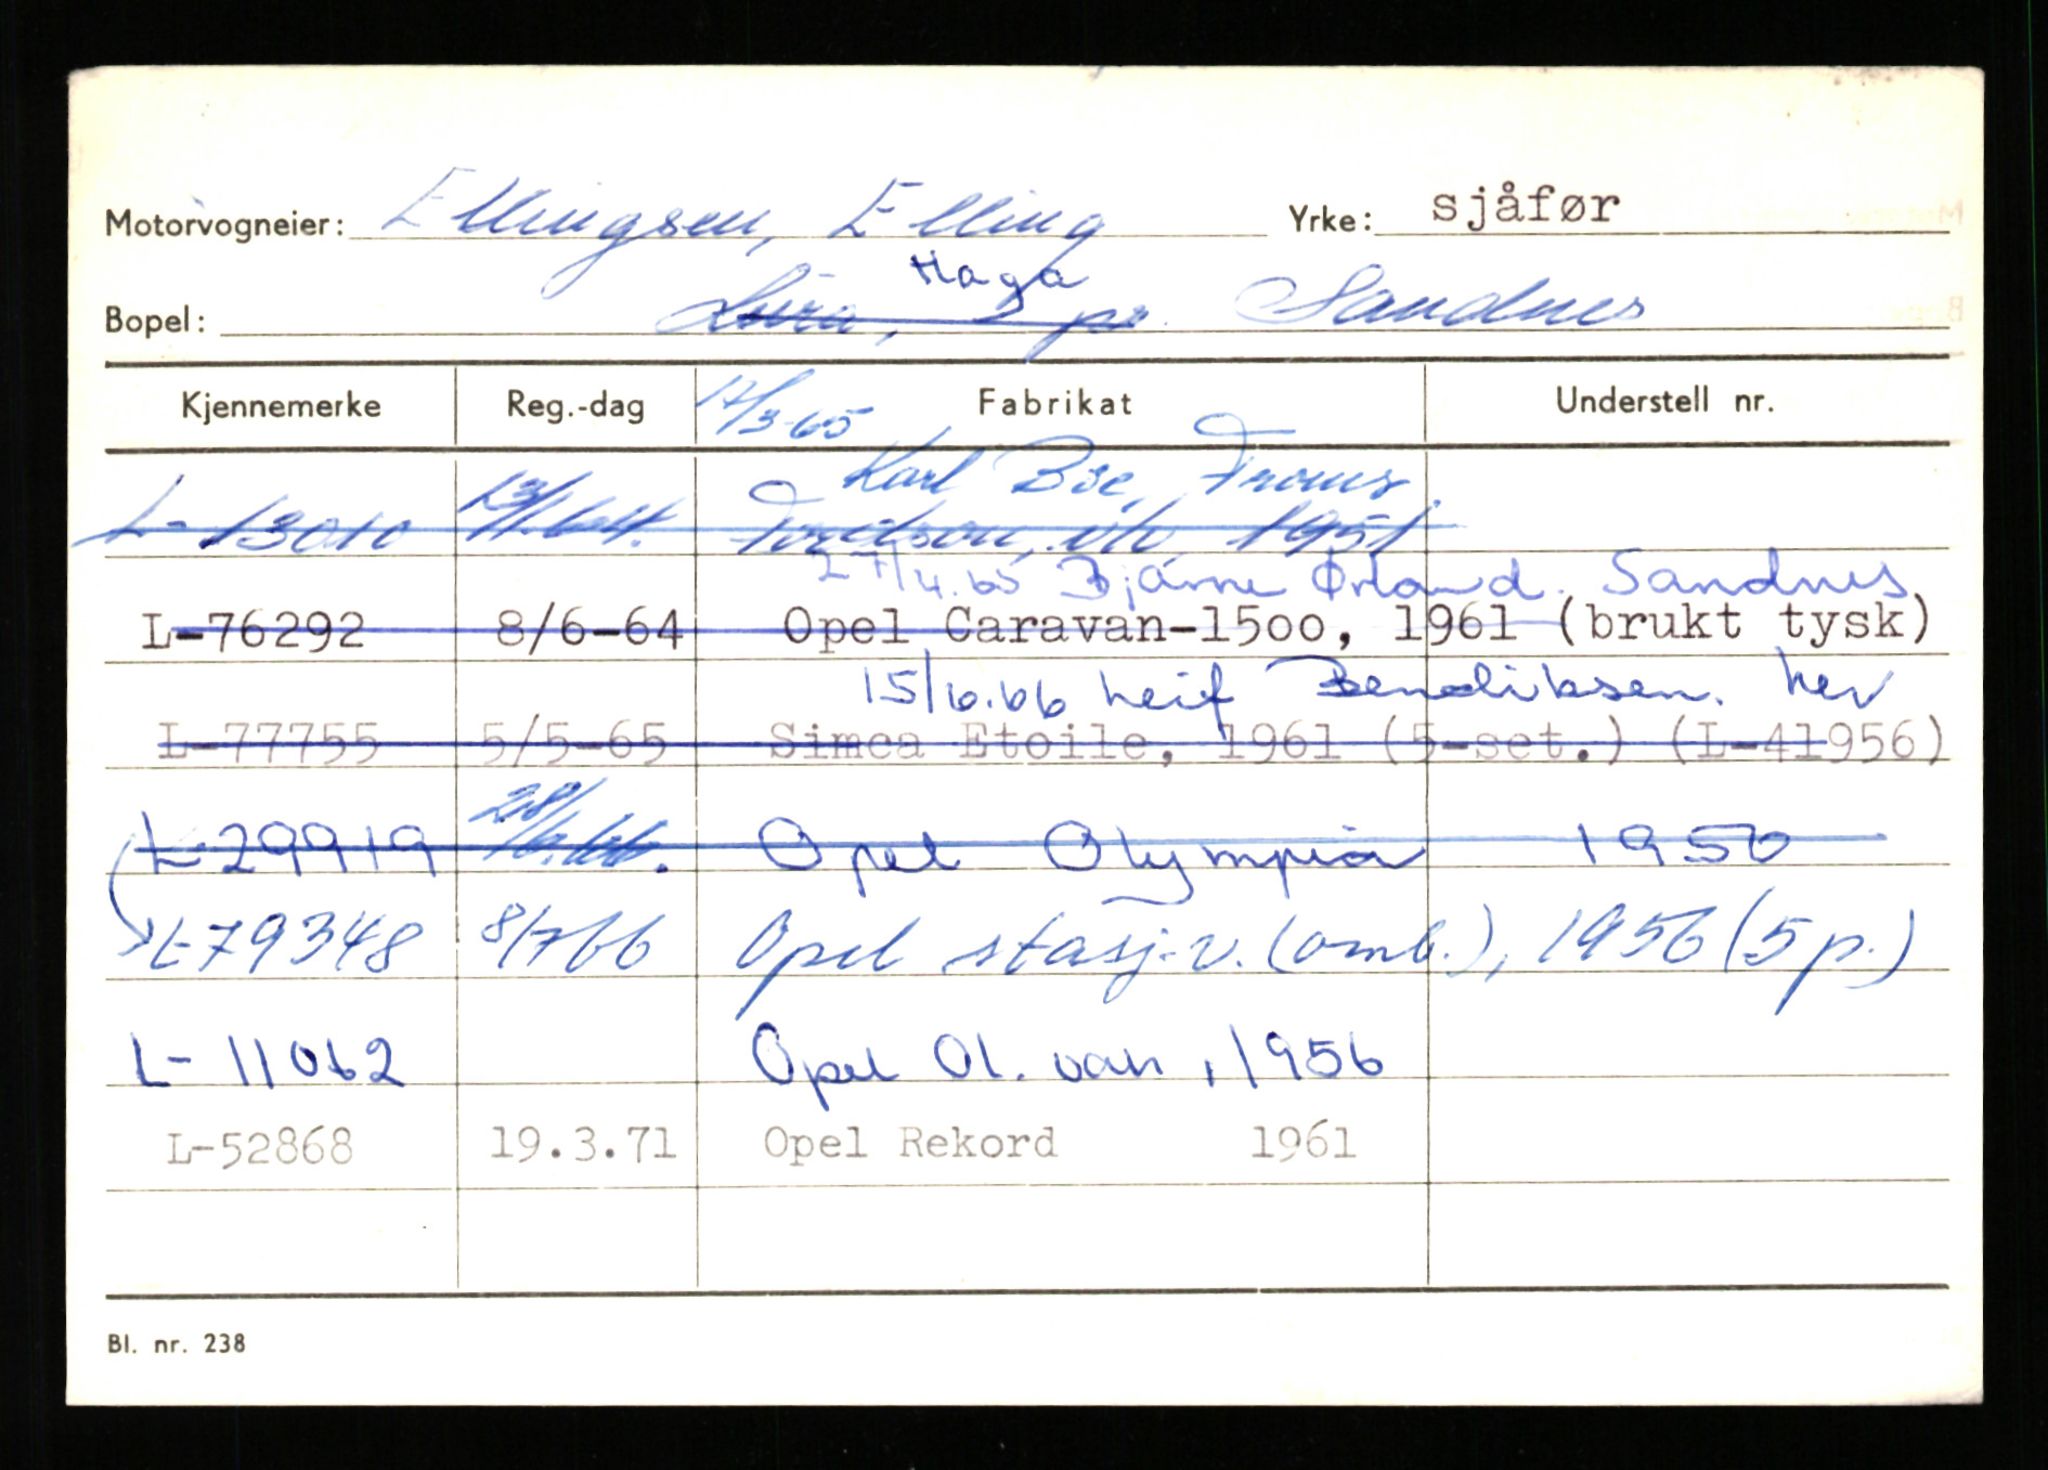 Motorvogneier: Ellingsen, Elling Yrke: sjåfør
Haga
Bopel: Lura, pr. Sandnes
Kjennemerke Reg.-dag Fabrikat Understell nr.
17/3-65 Karl Bøe, Troms.
L-13010 13/1.64. Fordson, v/v, 1951
27/4.65 Bjarne Ørland. Sandnes
L-76292 8/6-64 Opel Caravan-1500, 1961 (brukt tysk)
15/6.66 Leif Bendiksen. her
L-77755 5/5-65 Simca Etoile, 1961 (5-set.) (L-41956)
L-29919 28/6.66. Opel Olympia 1950
L-79348 8/7 66 Opel stasj.v. (omb.), 1956 (5 p.)
L-11062 Opel Ol. van, 1956
L-52868 19.3.71 Opel Rekord 1961
Bl. nr. 238